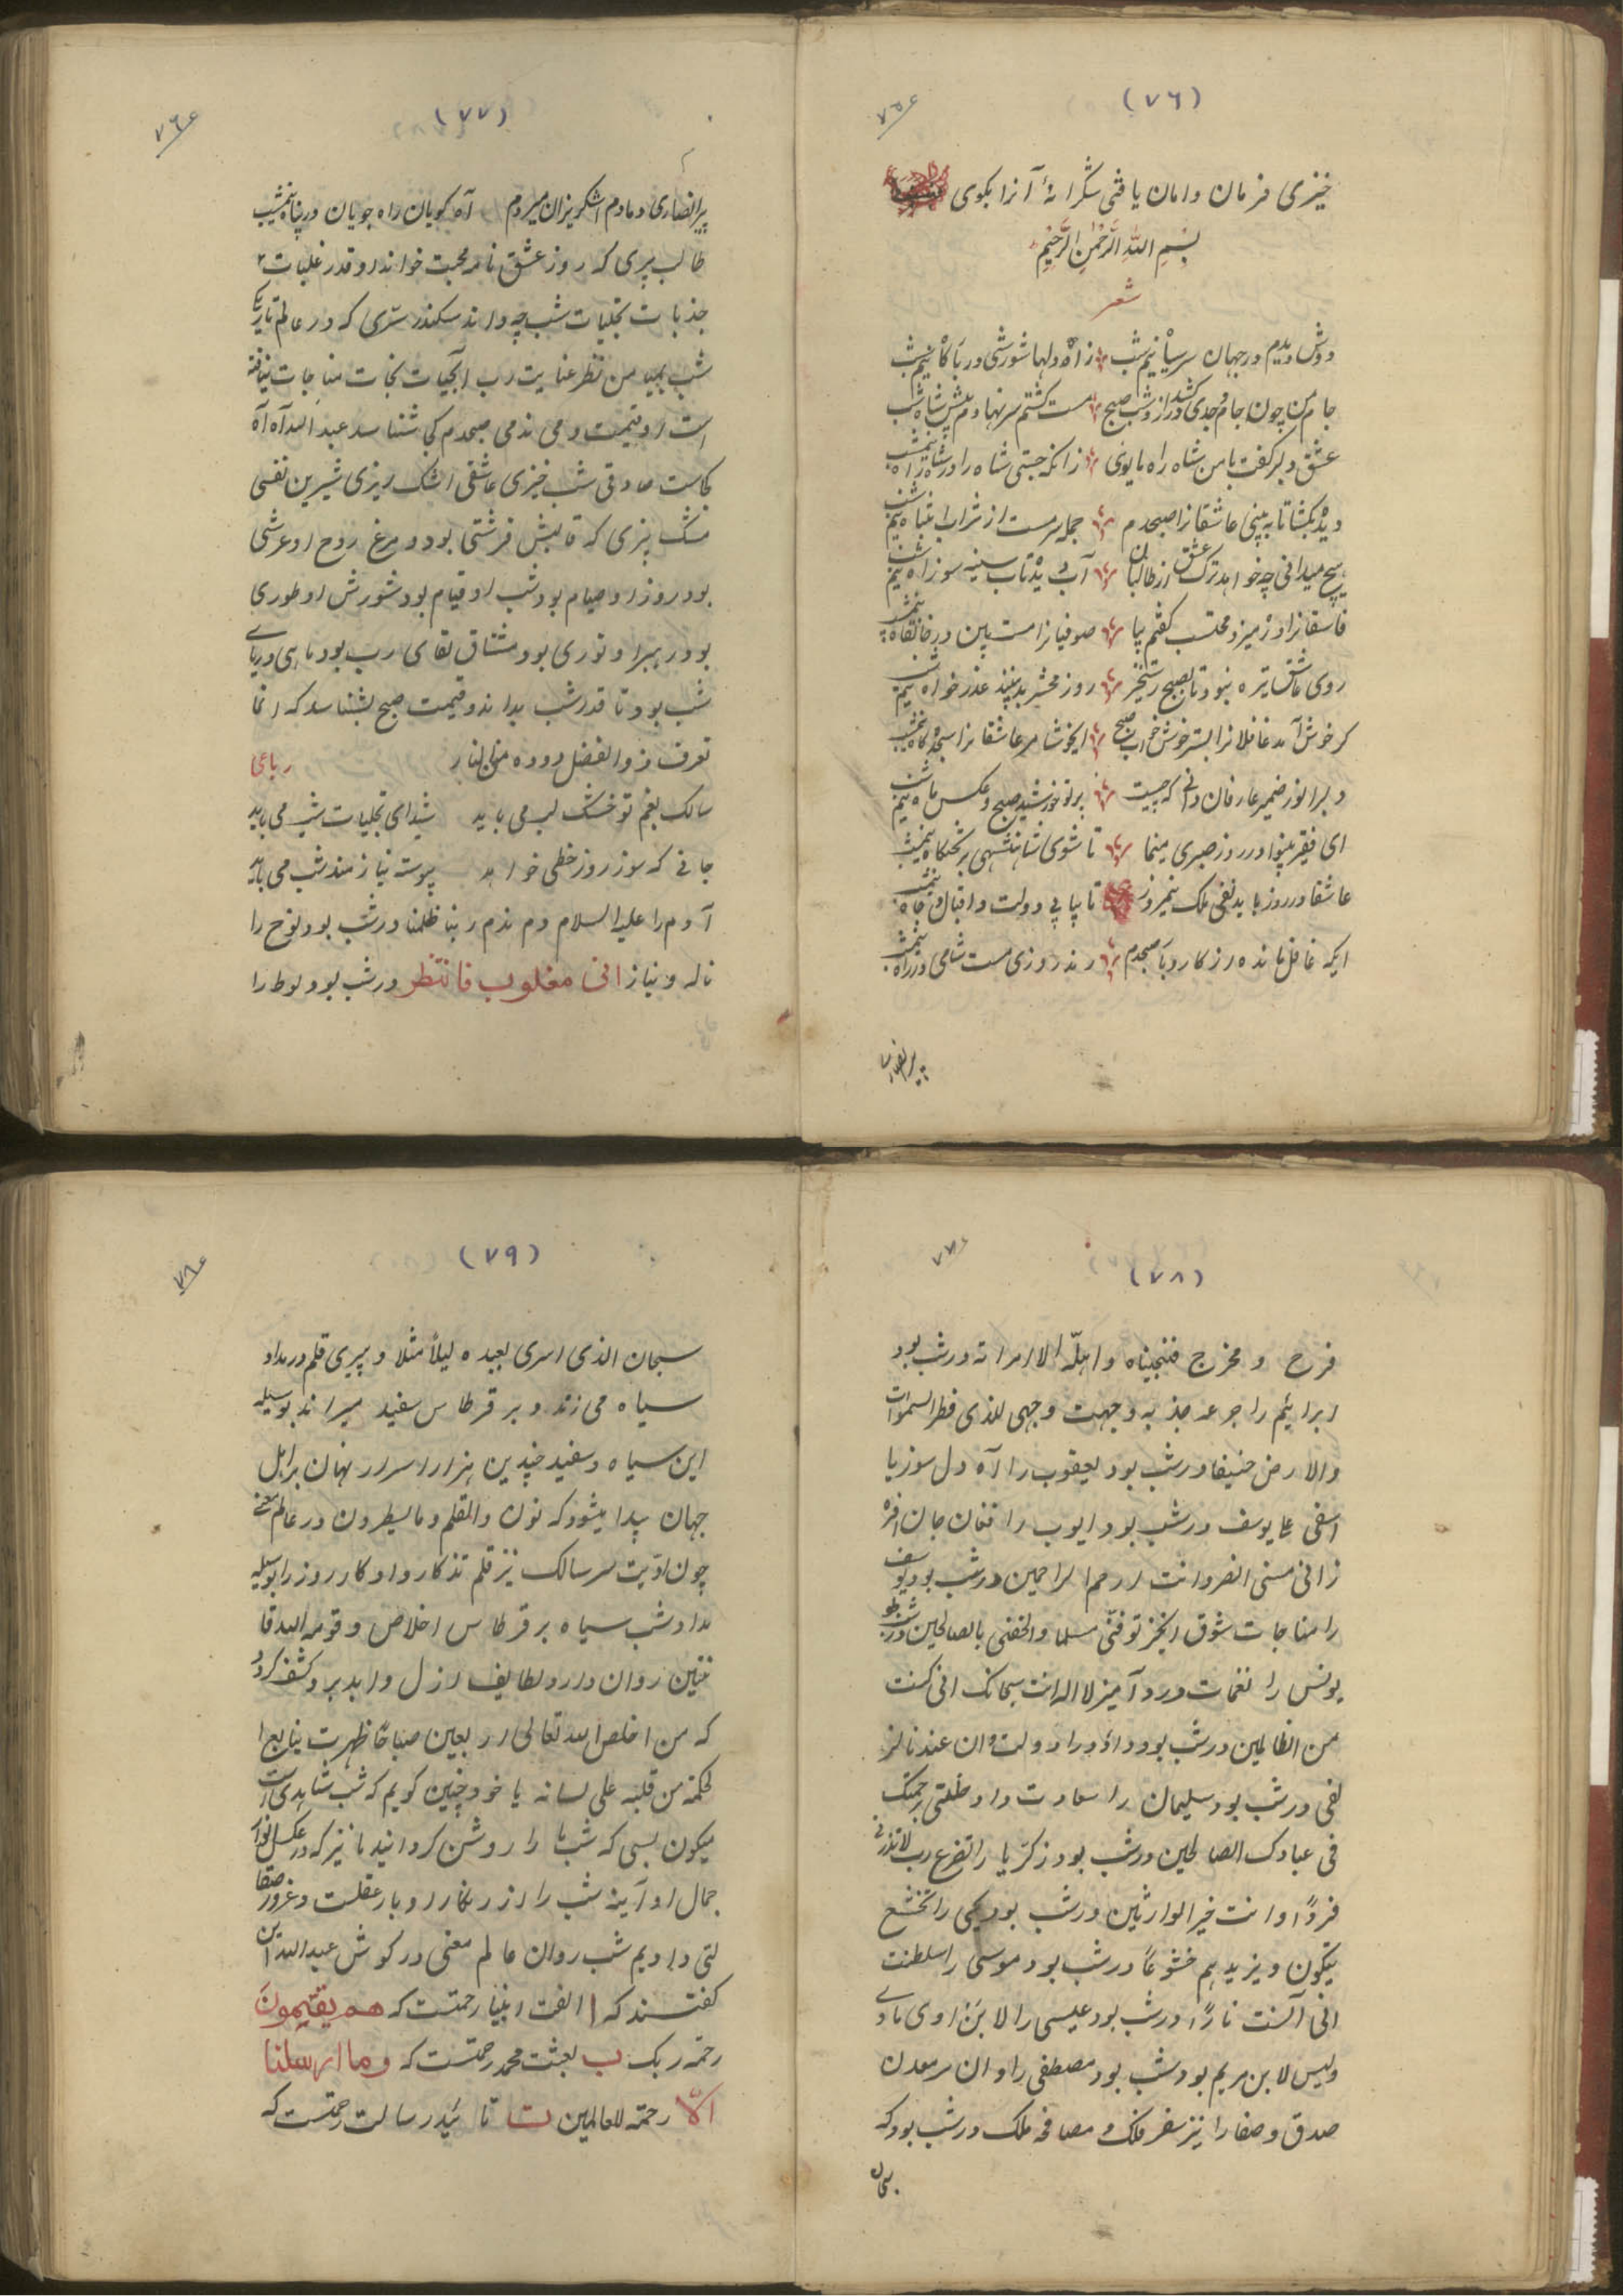 (٧٦)
خیزی فرمان و امان یافتی شکرانهٔ آنرا بکوی
بِسْمِ اللهِ الرَّحْمٰنِ الرَّحِیْمِ
شعر
دوش دیدم در جهان سر سپاه نیم شب زآه دلها شورشی در بارکاه نیم شب
جام من چون جام وجدی در کشد از وشب صبح مست کشتم سر نهادم پیش شاه نیم شب
عشق دلبر کفت با من شاه راه ما بوی زانکه جستی شاه را در شاه راه نیم شب
دیده بکشا تا به بینی عاشقانرا صبحدم جمله سرمست از شراب انتباه نیم شب
هیچ میدانی چه خواهد ترک عشق از طالبان آب دیده تاب سینه سوز آه نیم شب
فاسقانرا در میزد محتسب کفتم بیا صوفیانرا مست بین در خانقاه نیم شب
روی عاشق تیره نبود تا بصبح رستخیز روز محشر بد نبیند عذر خواه نیم شب
کر خوش آمد غافلانرا بستر خوش خواب صبح ایخوشا مر عاشقانرا سجده کاه نیم شب
دلبرا نور ضمیر عارفان دانی که چیست پرتو خورشید صبح و عکس ماه نیم شب
ای فقیر بینوا در روز صبری مینما تا شوی شاهنشهی بر تختکاه نیم شب
عاشقا در روز باید نفی ملک نیمروز تا بیابی دولت و اقبال و جاه نیم شب
ایکه غافل مانده از کار و بار صبحدم رند روزی مست شامی در راه نیم شب
پیر انصاری
(٧٧)
پیر انصاری دمادم اشکریزان میرود آه کویان راه جویان در پناه نیم شب
طالب پیری که روز عشق نامه محبت خواند او قدر غلبات
جذبات تجلیات شب چه داند سکندر سری که در عالم تاریک
شب بمیامن نظر عنایت رب آبحیات نجات مناجات نیافته
است او قیمت دمی ندمی صبحدم کی شناسد عبد الله آه آه
کجاست صادقی شب خیزی عاشقی اشک ریزی شیرین نفسی
مشک بیزی که قالبش فرشتی بود و مرغ روح او عرشی
بود روز او صیام بود شب او قیام بود شورش او طوری
بود رهبر او نوری بود مشتاق لقای رب بود ماهی دریای
شب بود تا قدر شب بداند و قیمت صبح بشناسد که انما
تعرف ذو الفضل دوده من النار رباعی
سالک بغم تو خشک لب می باید شیدای تجلیات شب می باید
جانی که سوز روز خطی خواهد پیوسته نیازمند شب می باید
آدم را علیه السلام دم ندم ربنا ظلمنا در شب بود نوح را
ناله و نیاز انی مغلوب فانتظر در شب بود لوط را
(٧٨)
فرح و مخرج فنجیناه و اهله الا امراته در شب بود
ابراهیم را جرعه جذبه وجهت وجهی للذی فطر السموات
والارض حنیفا در شب بود یعقوب را آه دل سوز یا
اسفی علی یوسف در شب بود ایوب را فغان جان افزا
ز انی مسنی الضر و انت ارحم الراحمین در شب بود یوسف
را مناجات شوق انکیز توفنی مسلما و الحقنی بالصالحین در شب بود
یونس را نغمات درد آمیز لا اله الا انت سبحانک انی کنت
من الظالمین در شب بود داؤد را دولت وان عندنا لز
لفی در شب بود سلیمان را سعادت و ادخلنی برحمتک
فی عبادک الصالحین در شب بود زکریا را تضرع رب لا تذرنی
فردًا و انت خیر الوارثین در شب بود یحیی را تخشع
یبکون و یزیدهم خشوعًا در شب بود موسی را سلطنت
انی آنست نارًا در شب بود عیسی را لابن اوی ماوی
ولیس لابن مریم بود شب بود مصطفی را و آن سر معدن
صدق و صفا را نیز سفر فلک و مصافحه ملک در شب بود که
سبحان
(٧٩)
سبحان الذی اسری بعبده لیلاً مثلا دبیری قلم در مداد
سیاه می زند و بر قرطاس سفید میراند بوسیله
این سیاه و سفید چندین هزار اسرار نهان بر اهل
جهان پیدا میشود که نون والقلم وما یسطرون در عالم معنی
چون ادیت سر سالک نیز قلم تذکار و اذکار روز را بوسیله
مداد شب سیاه بر قرطاس اخلاص و قوموا لله قا
نتین روان دارد لطایف ازل و ابد برو کشف کردد
که من اخلص لله تعالی اربعین صباحًا ظهرت ینابیع ا
لحکمة من قلبه علی لسانه یا خود چنین کویم که شب شاهدی است
میکون بسی که شبها را روشن کردانید تا نیز که در عکس انوار
جمال او آینه شب را از زنکار ادبار عقلت و غرور صفا
لتی دادیم شب روان عالم معنی در کوش عبدالله این
کفتند که ا الفت انبیا رحمتست که هم یقیمون
رحمة ربک ب بعثت محمد رحمتست که وما ارسلنا
الا رحمة للعالمین ت تائید رسالت رحمتست که